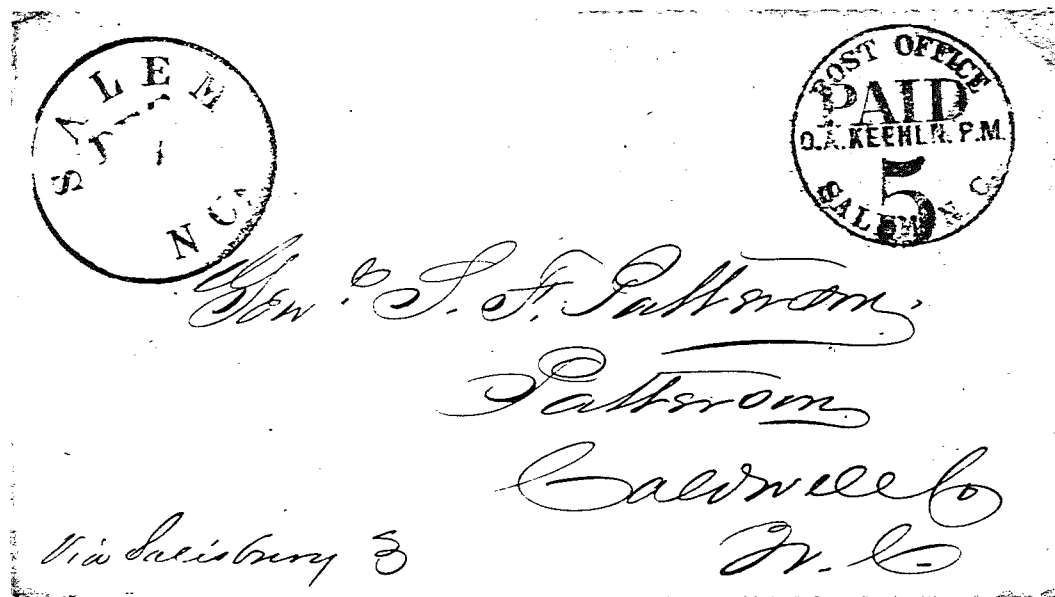 SALEM
1
N C.
POST OFFICE
PAID
O.A. KEEHLN. P.M.
5
SALEM N C
Genl. S. F. Patterson,
Patterson
Caldwell Co
N. C.
Via Salisbury